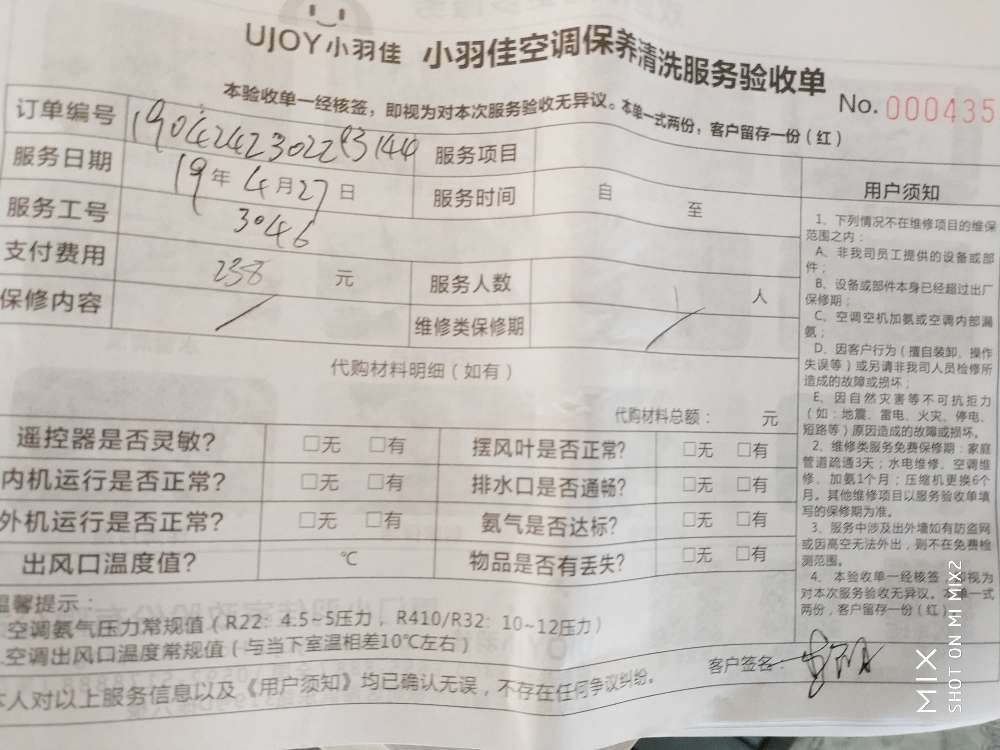 UJOY小羽佳 小羽佳空调保养清洗服务验收单
No. 000435
本验收单一经核签，即视为对本次服务验收无异议。本单一式两份，客户留存一份（红）
订单编号 服务项目
服务日期 19年4月27日 服务时间 自 至
服务工号 3046
支付费用 238 元 服务人数 人
保修内容 维修类保修期
代购材料明细（如有）
代购材料总额： 元
遥控器是否灵敏？ □无 □有 摆风叶是否正常？ □无 □有
内机运行是否正常？ □无 □有 排水口是否通畅？ □无 □有
外机运行是否正常？ □无 □有 氨气是否达标？ □无 □有
出风口温度值？ ℃ 物品是否有丢失？ □无 □有
温馨提示：
空调氨气压力常规值（R22：4.5~5压力，R410/R32：10~12压力）
空调出风口温度常规值（与当下室温相差10℃左右）
本人对以上服务信息以及《用户须知》均已确认无误，不存在任何争议纠纷。
客户签名：
用户须知
1、下列情况不在维修项目的维保
范围之内：
A、非我司员工提供的设备或部
件；
B、设备或部件本身已经超过出厂
保修期；
C、空调空机加氨或空调内部漏
氨；
D、因客户行为（擅自装卸、操作
失误等）或另请非我司人员检修所
造成的故障或损坏；
E、因自然灾害等不可抗拒力
（如：地震、雷电、火灾、停电、
短路等）原因造成的故障或损坏。
2、维修类服务免费保修期：家庭
管道疏通3天；水电维修、空调维
修、加氨1个月；压缩机更换6个
月。其他维修项目以服务验收单填
写的保修期为准。
3、服务中涉及出外墙如有防盗网
或因高空无法外出，则不在免费检
测范围。
4、本验收单一经核签 视为
对本次服务验收无异议。本单一式
两份，客户留存一份（红）
MIX
SHOT ON MI MIX2